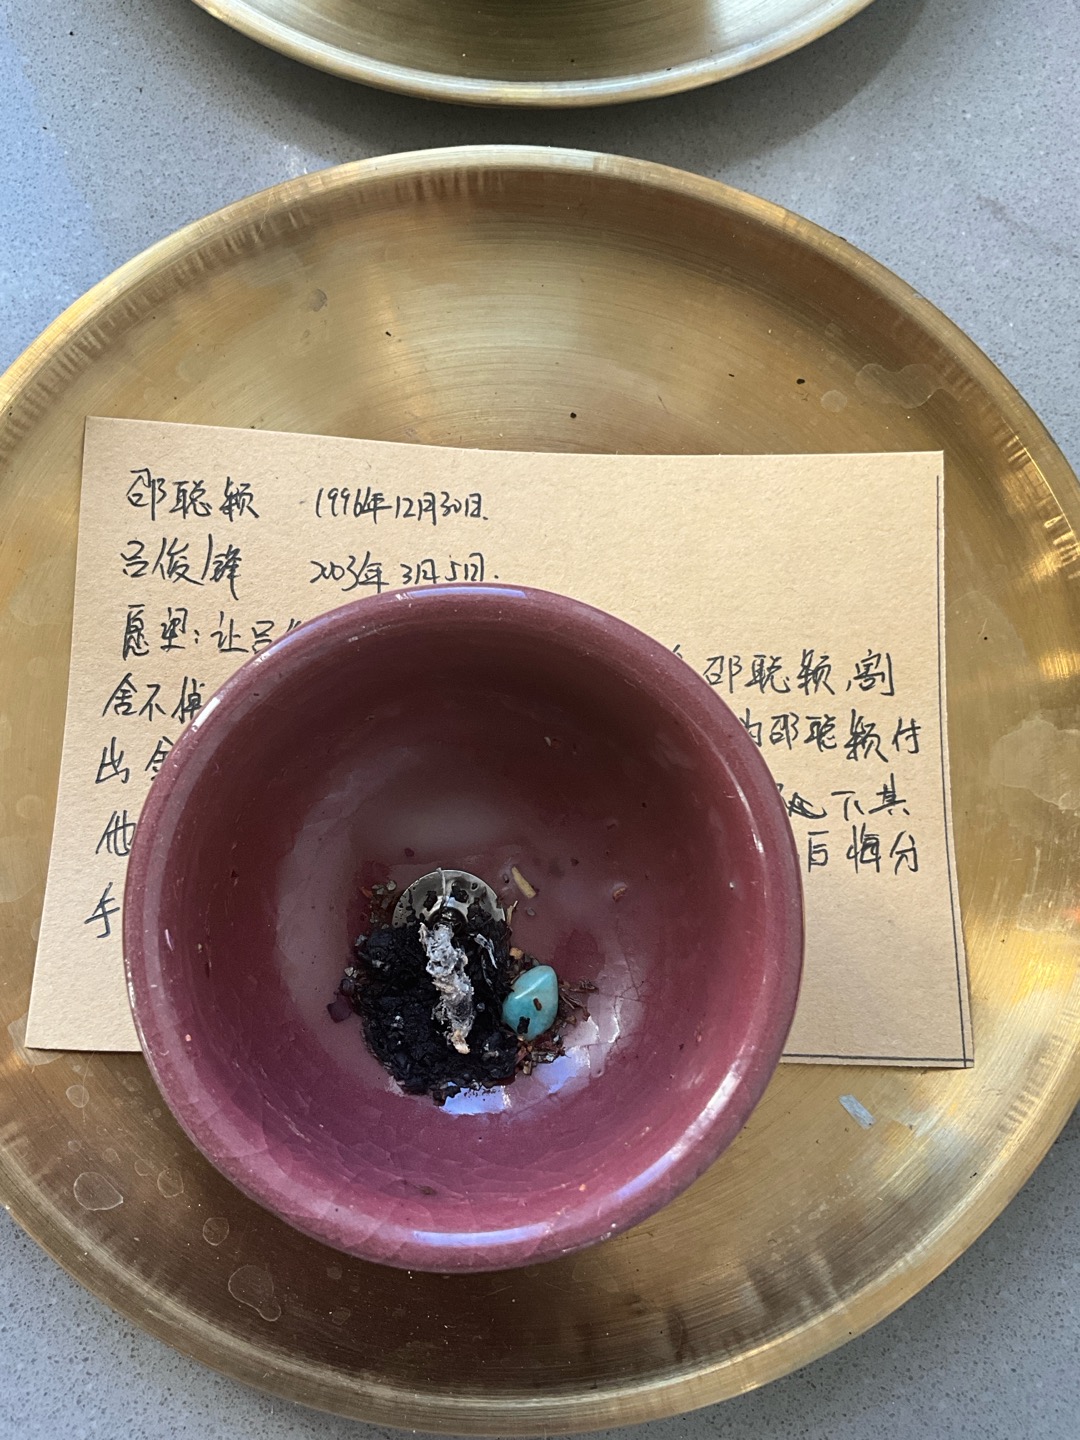 邵聪颖 1996年12月30日.
吕俊锋 2003年3月5日.
愿望:让吕 邵聪颖,割
舍不掉 为邵聪颖付
出 下其
他 后悔分
手